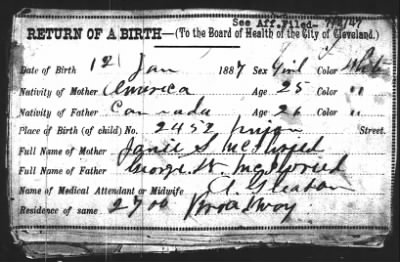 See Aff. Filed- 7/2/47
RETURN OF A BIRTH—(To the Board of Health of the City of Cleveland.)
Date of Birth 12 Jan 1887 Sex Girl Color White
Nativity of Mother America Age 25 Color "
Nativity of Father Canada Age 26 Color "
Place of Birth (of child) No. 2452 Union Street.
Full Name of Mother Janie S
Full Name of Father George W.
Name of Medical Attendant or Midwife A Gleason
Residence of same 2700 Broadway